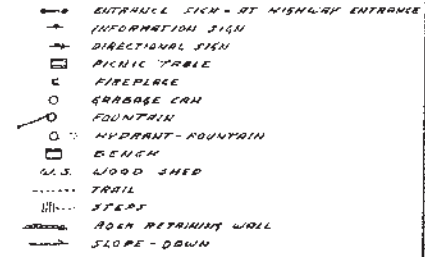 ENTRANCE SIGN - AT HIGHWAY ENTRANCE
INFORMATION SIGN
DIRECTIONAL SIGN
PICNIC TABLE
FIREPLACE
GARBAGE CAN
FOUNTAIN
HYDRANT - FOUNTAIN
BENCH
W.S. WOOD SHED
TRAIL
STEPS
ROCK RETAINING WALL
SLOPE - DOWN